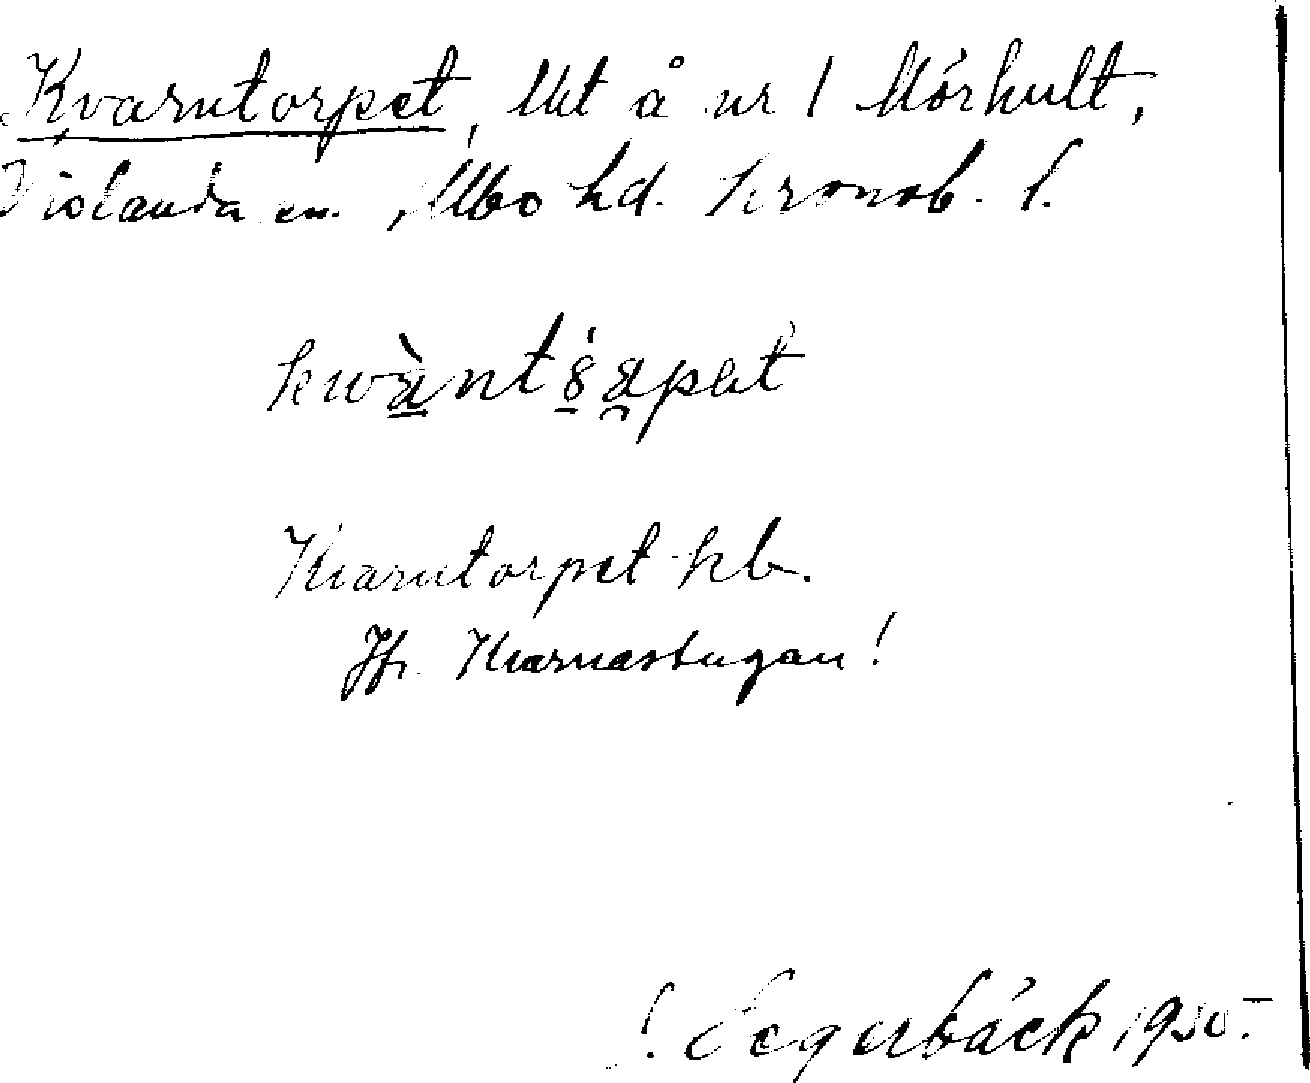 Kvarntorpet, lht å nr 1 Mörhult,
Vislanda sn. Allbo hd. Kronob. l.
kwàntsapet
Kvarntorpet hb.
Jfr. Kvarnastugan!
! Segerbäck 1930.